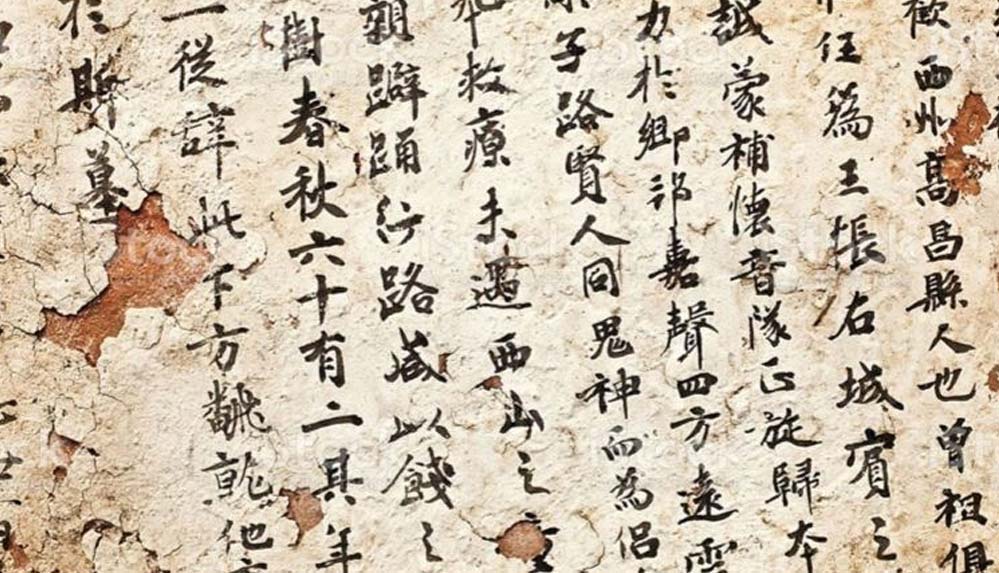 歡西州高昌縣人也曾祖俱
任爲王帳右城賓之
誠蒙補懷音隊正旋歸本
力於鄉邦嘉聲四方遠
子路賢人同鬼神而為侣
救療未遇西山之
親躃踊行路咸以餞之
樹春秋六十有二其年
一從辭此下方他
於斯墓